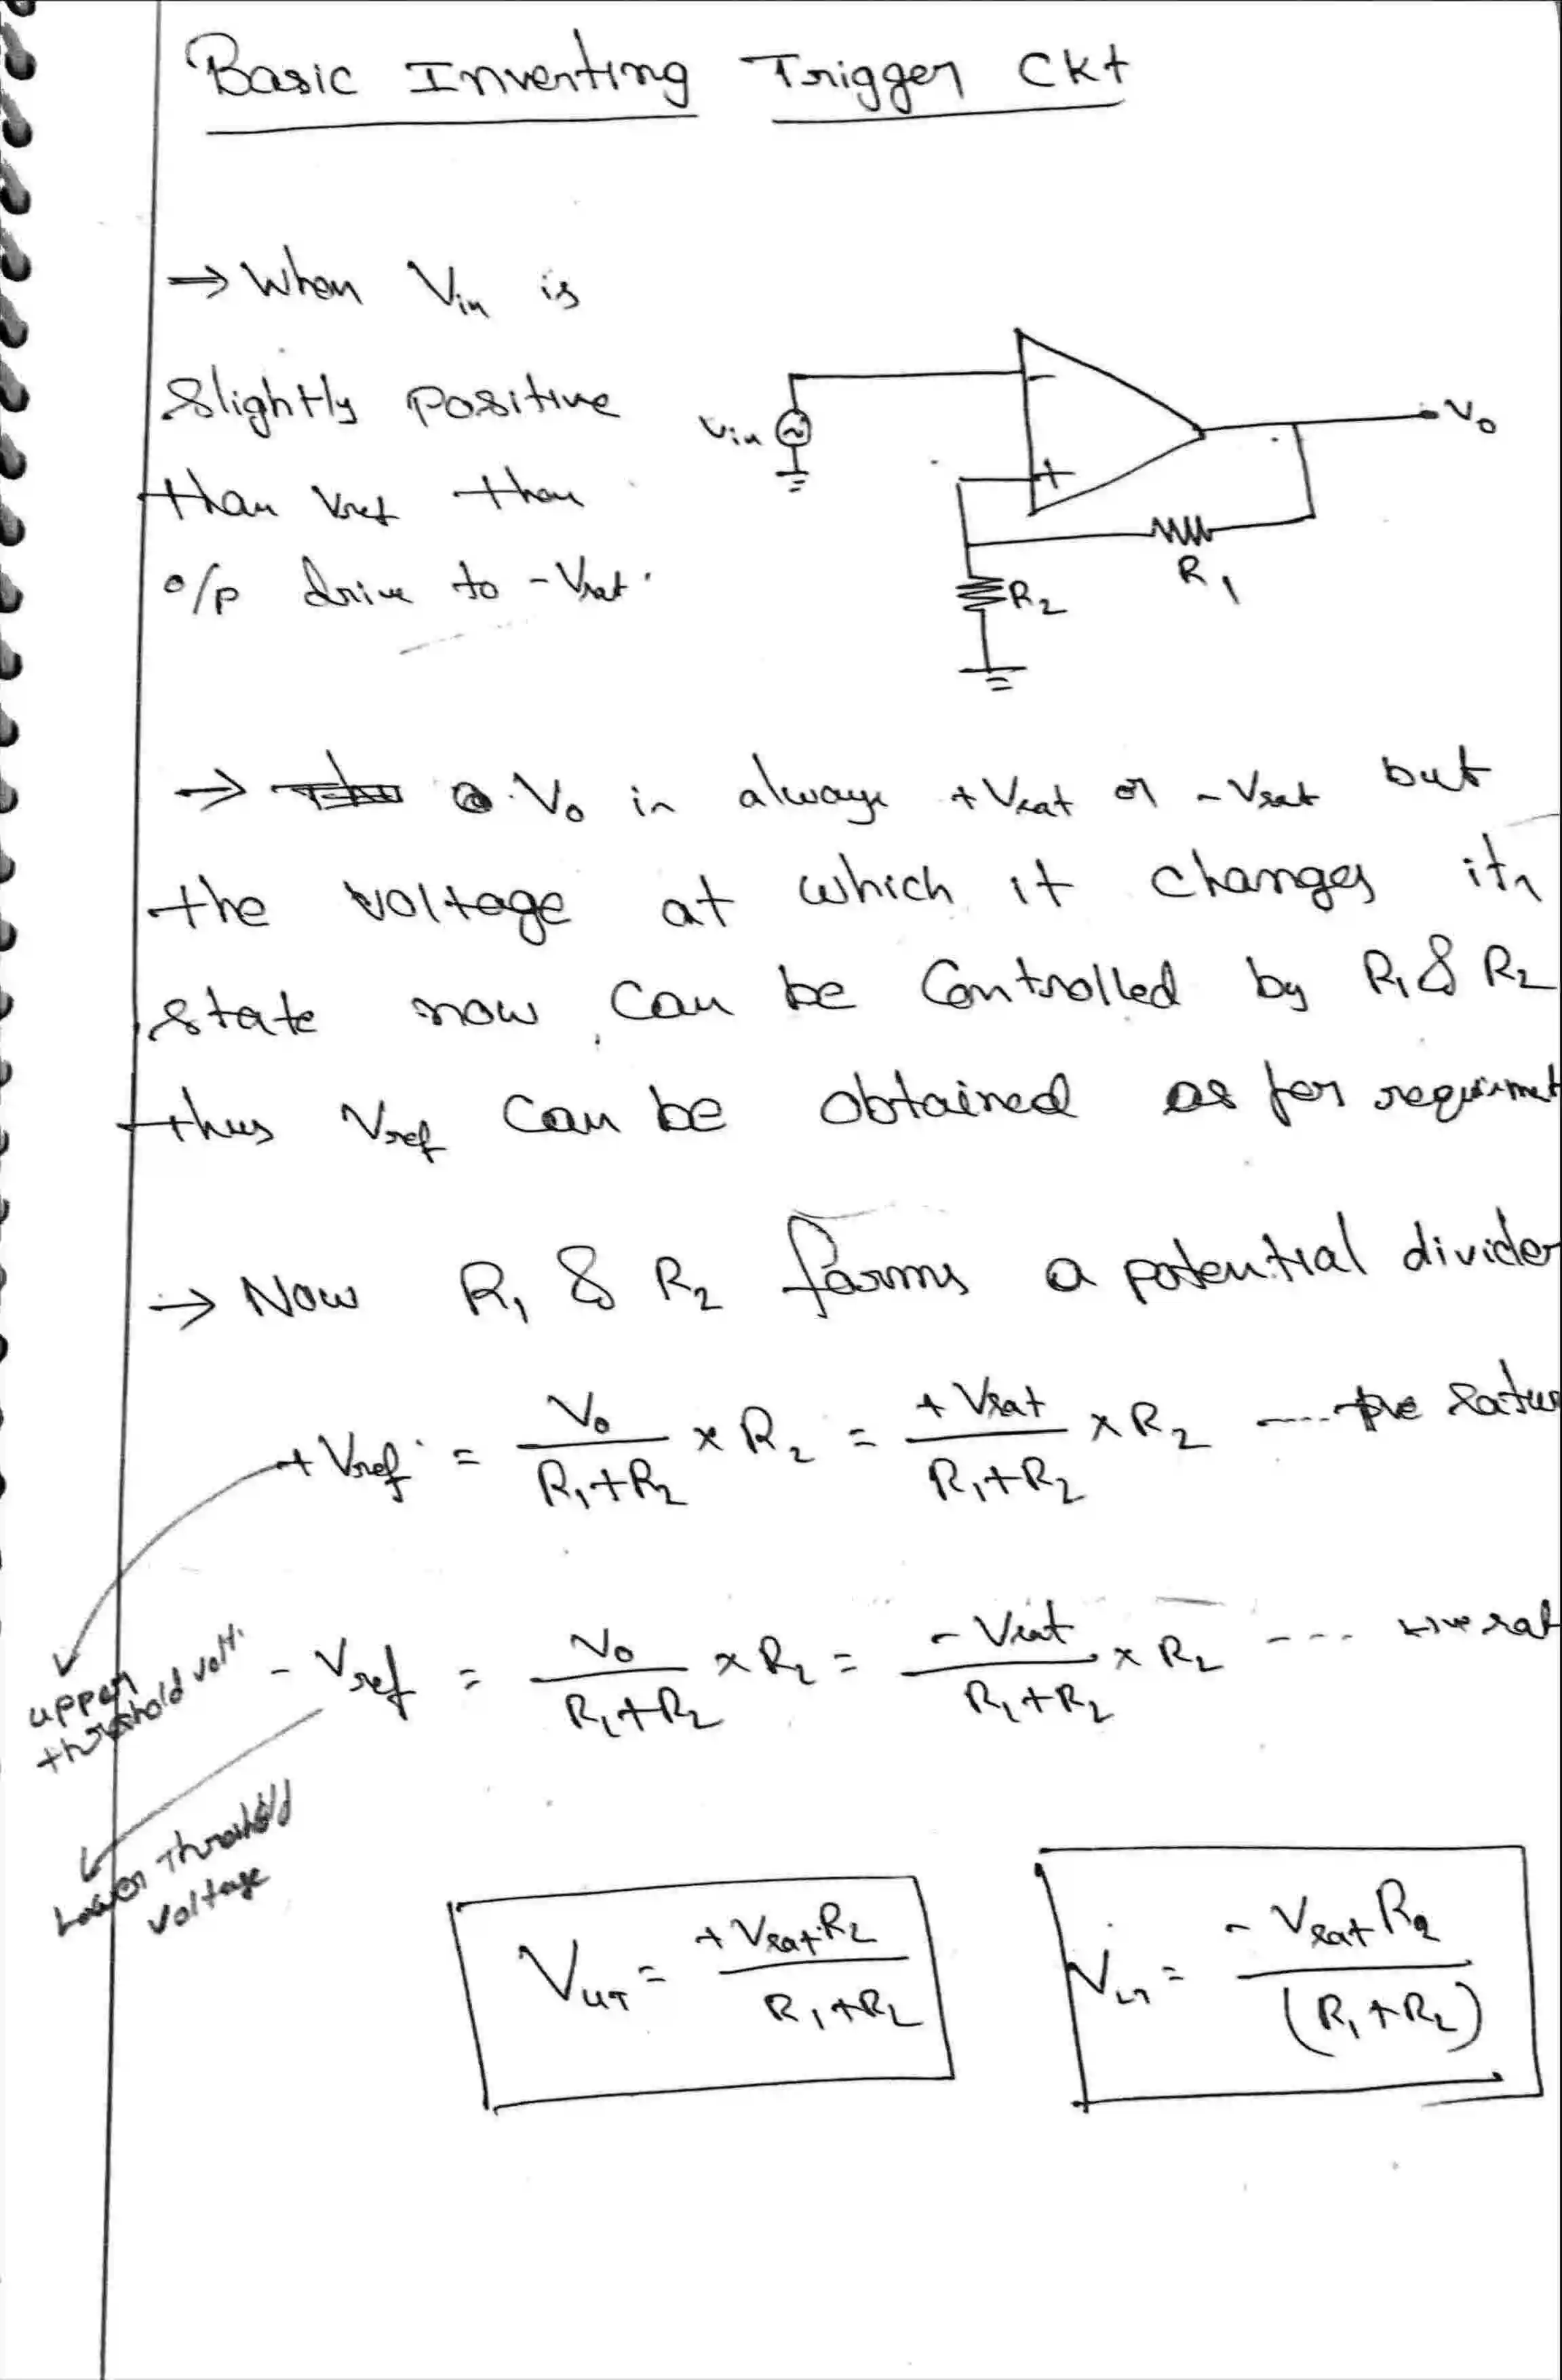 Basic Inverting Trigger Ckt
→ When Vin is
slightly positive
than Vref then
o/p drive to -Vsat.
Vin
-
+
Vo
R1
R2
→ Vo is always +Vsat or -Vsat but
the voltage at which it changes its
state now can be Controlled by R1 & R2
thus Vref can be obtained as per
→ Now R1 & R2 forms a potential divider
+Vref = Vo/(R1+R2) × R2 = +Vsat/(R1+R2) × R2 ---- +ve satur
-Vref = Vo/(R1+R2) × R2 = -Vsat/(R1+R2) × R2 --- sat
upper
threshold volt.
Lower Threshold
voltage
VUT = +Vsat R2/(R1+R2)
VLT = -Vsat R2/(R1+R2)